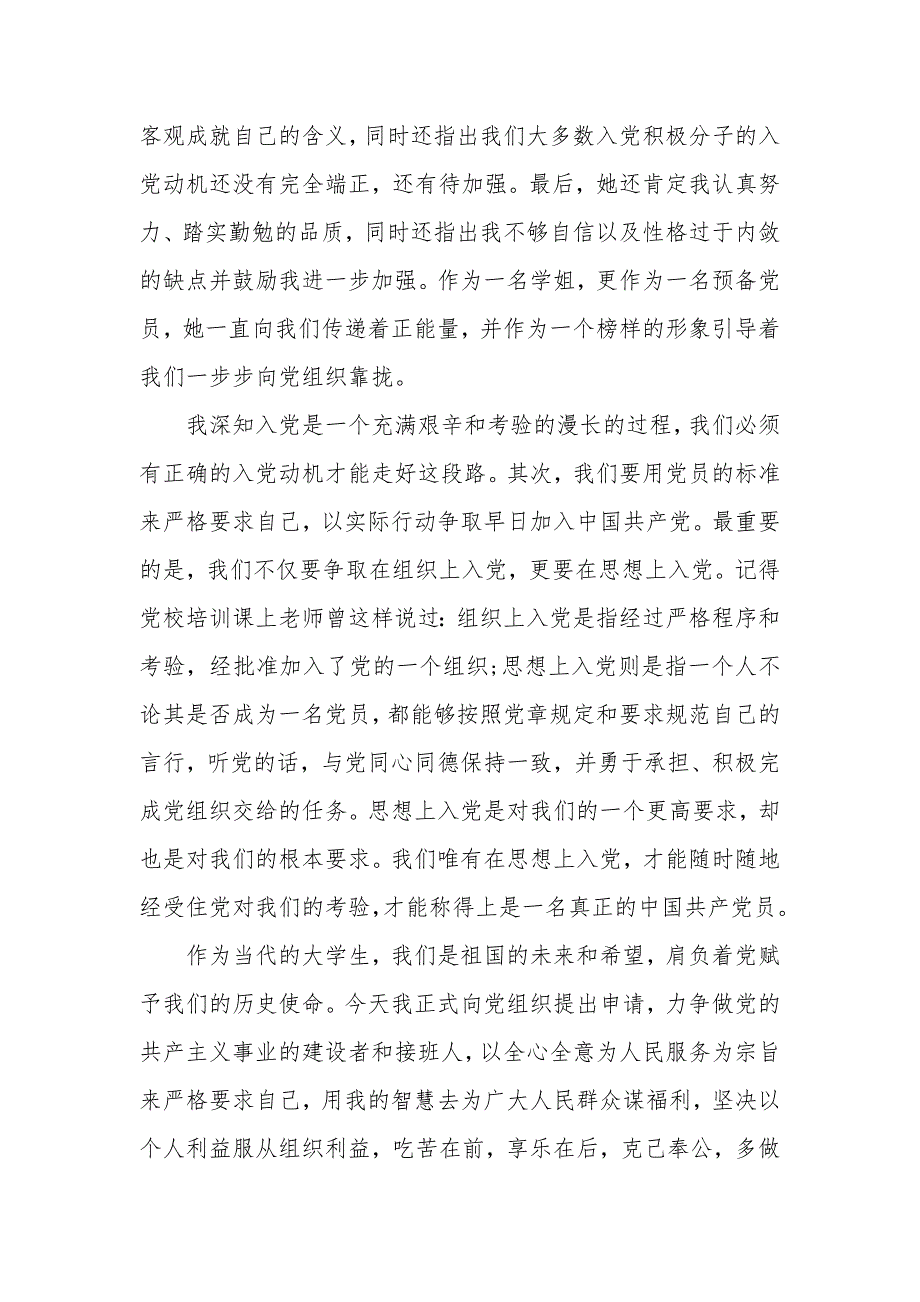 客观成就自己的含义，同时还指出我们大多数入党积极分子的入
党动机还没有完全端正，还有待加强。最后，她还肯定我认真努
力、踏实勤勉的品质，同时还指出我不够自信以及性格过于内敛
的缺点并鼓励我进一步加强。作为一名学姐，更作为一名预备党
员，她一直向我们传递着正能量，并作为一个榜样的形象引导着
我们一步步向党组织靠拢。
我深知入党是一个充满艰辛和考验的漫长的过程，我们必须
有正确的入党动机才能走好这段路。其次，我们要用党员的标准
来严格要求自己，以实际行动争取早日加入中国共产党。最重要
的是，我们不仅要争取在组织上入党，更要在思想上入党。记得
党校培训课上老师曾这样说过：组织上入党是指经过严格程序和
考验，经批准加入了党的一个组织;思想上入党则是指一个人不
论其是否成为一名党员，都能够按照党章规定和要求规范自己的
言行，听党的话，与党同心同德保持一致，并勇于承担、积极完
成党组织交给的任务。思想上入党是对我们的一个更高要求，却
也是对我们的根本要求。我们唯有在思想上入党，才能随时随地
经受住党对我们的考验，才能称得上是一名真正的中国共产党员。
作为当代的大学生，我们是祖国的未来和希望，肩负着党赋
予我们的历史使命。今天我正式向党组织提出申请，力争做党的
共产主义事业的建设者和接班人，以全心全意为人民服务为宗旨
来严格要求自己，用我的智慧去为广大人民群众谋福利，坚决以
个人利益服从组织利益，吃苦在前，享乐在后，克己奉公，多做